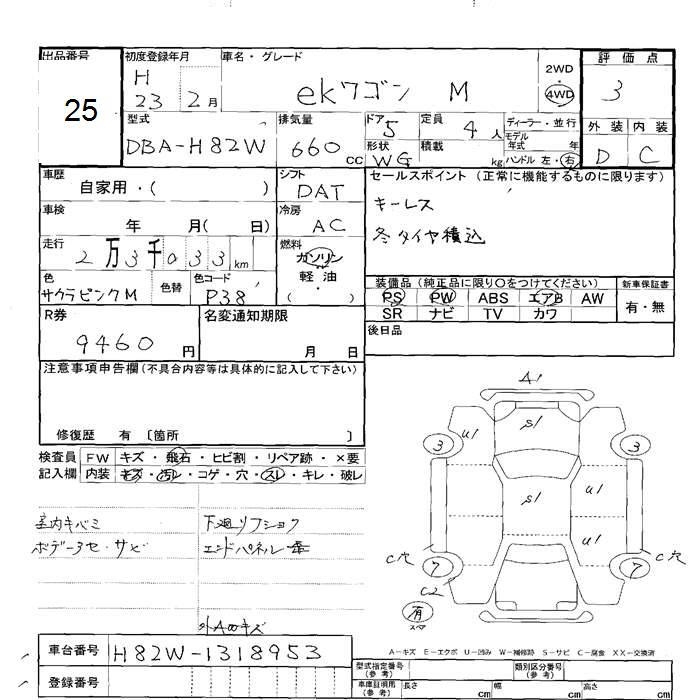 出品番号 初度登録年月 車名・グレード 評価点
25 H 23 2月 ekワゴン M 2WD 4WD 3
型式 排気量 ドア 5 定員 4人 ディーラー・並行 外装 内装
DBA-H82W 660cc 形状 WG 積載 kg モデル年式 年 ハンドル 左・右 D C
車歴 シフト セールスポイント(正常に機能するものに限ります)
自家用・( ) DAT キーレス
車検 年 月( 日) 冷房 AC 冬タイヤ積込
走行 2万3千033km 燃料 ガソリン・軽油 ( )
色 サクラピンクM 色替 色コード P38
装備品(純正品に限り○をつけてください) 新車保証書
PS PW ABS エアB AW 有・無
SR ナビ TV カワ
R券 9460円 名変通知期限 月 日 後日品
注意事項申告欄(不具合内容等は具体的に記入して下さい)
修復歴 有 〔箇所 〕
検査員 FW キズ・飛石・ヒビ割・リペア跡・×要
記入欄 内装 キズ・汚レ・コゲ・穴・スレ・キレ・破レ
室内キバミ 下廻リフショク
ボデー3セ・サビ エンドパネル
A1
U1 S1
3 3
S1 U1
U1
C穴 7 7 C穴
C2
有
スペア
A-キズ E-エクボ U-凹み W-補修跡 S-サビ C-腐食 XX-交換済
車台番号 H82W-1318953
登録番号
型式指定番号(参考) 類別区分番号(参考)
車庫証明用(参考) 長さ cm 幅 cm 高さ cm